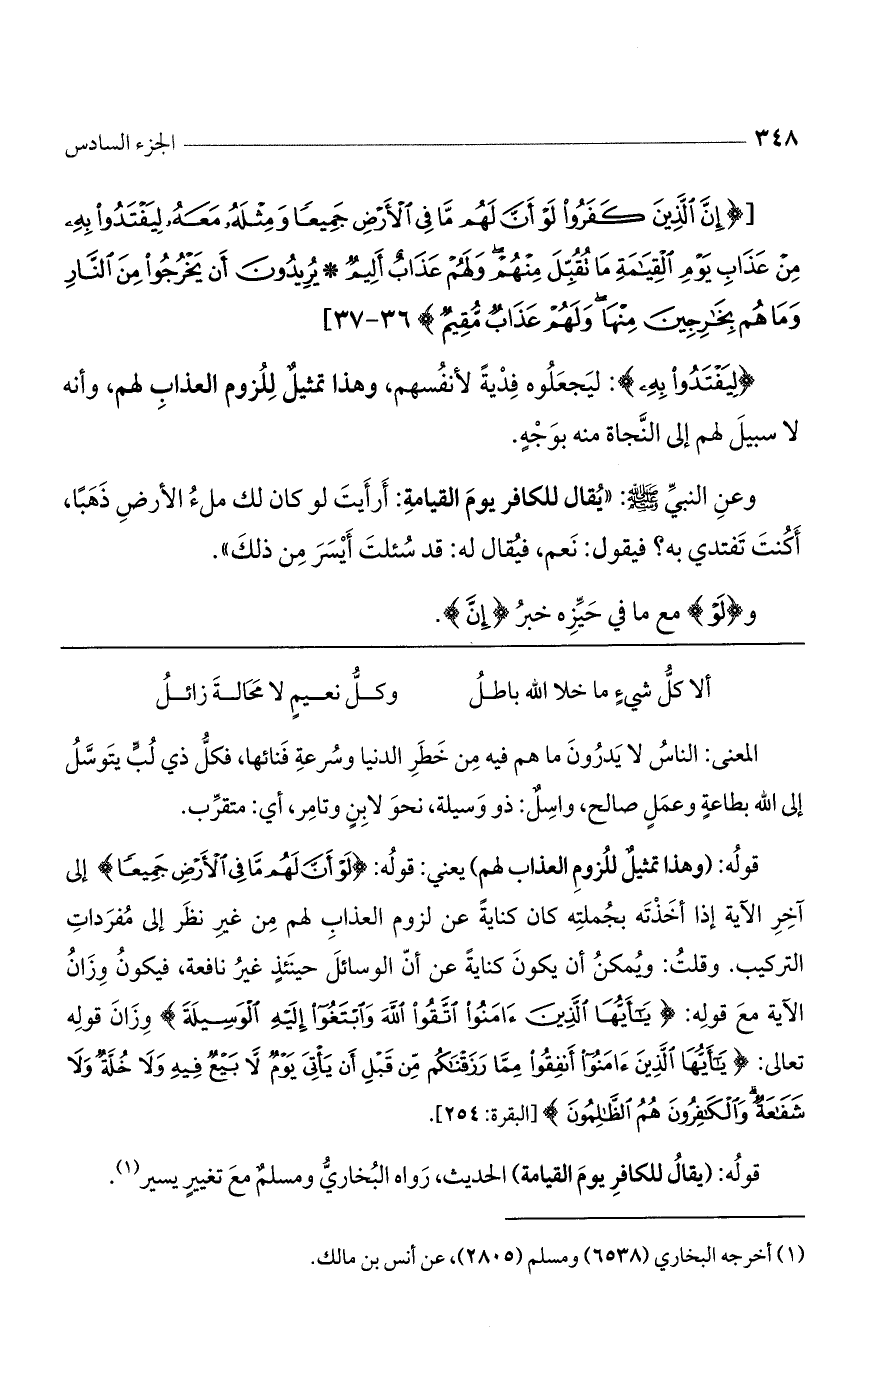 ٣٤٨ الجزء السادس
[﴿إِنَّ ٱلَّذِينَ كَفَرُوا۟ لَوْ أَنَّ لَهُم مَّا فِى ٱلْأَرْضِ جَمِيعًا وَمِثْلَهُۥ مَعَهُۥ لِيَفْتَدُوا۟ بِهِۦ
مِنْ عَذَابِ يَوْمِ ٱلْقِيَٰمَةِ مَا تُقُبِّلَ مِنْهُمْ ۖ وَلَهُمْ عَذَابٌ أَلِيمٌ * يُرِيدُونَ أَن يَخْرُجُوا۟ مِنَ ٱلنَّارِ
وَمَا هُم بِخَٰرِجِينَ مِنْهَا ۖ وَلَهُمْ عَذَابٌ مُّقِيمٌ﴾ ٣٦-٣٧]
﴿لِيَفْتَدُوا۟ بِهِۦ﴾: ليَجعَلُوه فِدْيةً لأنفُسهم، وهذا تمثيلٌ لِلُزوم العذابِ لهم، وأنه
لا سبيلَ لهم إلى النَّجاة منه بوَجْهٍ.
وعنِ النبيِّ ﷺ: «يُقال للكافر يومَ القيامةِ: أرأيتَ لو كان لك ملءُ الأرضِ ذَهَبًا،
أكُنتَ تَفتدي به؟ فيقول: نَعم، فيُقال له: قد سُئلتَ أيْسَرَ مِن ذلكَ».
و﴿لَوْ﴾ مع ما في حَيِّزِه خبرُ ﴿إِنَّ﴾.
ألا كلُّ شيءٍ ما خلا الله باطلُ وكلُّ نعيمٍ لا مَحَالةَ زائلُ
المعنى: الناسُ لا يَدرُونَ ما هم فيه مِن خَطَرِ الدنيا وسُرعةِ فَنائها، فكلُّ ذي لُبٍّ يتَوسَّلُ
إلى الله بطاعةٍ وعمَلٍ صالح، واسِلٌ: ذو وَسيلة، نحوَ لابِنٍ وتامِر، أي: متقرِّب.
قولُه: (وهذا تمثيلٌ للُزومِ العذاب لهم) يعني: قولُه: ﴿لَوْ أَنَّ لَهُم مَّا فِى ٱلْأَرْضِ جَمِيعًا﴾ إلى
آخِرِ الآية إذا أخَذْتَه بجُملتِه كان كنايةً عن لزوم العذابِ لهم مِن غيرِ نظَر إلى مُفرَداتِ
التركيب. وقلتُ: ويُمكنُ أن يكونَ كنايةً عن أنّ الوسائلَ حينَئذٍ غيرُ نافعة، فيكونُ وِزَانُ
الآية معَ قولِه: ﴿يَٰٓأَيُّهَا ٱلَّذِينَ ءَامَنُوا۟ ٱتَّقُوا۟ ٱللَّهَ وَٱبْتَغُوٓا۟ إِلَيْهِ ٱلْوَسِيلَةَ﴾ وِزَانَ قولِه
تعالى: ﴿يَٰٓأَيُّهَا ٱلَّذِينَ ءَامَنُوٓا۟ أَنفِقُوا۟ مِمَّا رَزَقْنَٰكُم مِّن قَبْلِ أَن يَأْتِىَ يَوْمٌ لَّا بَيْعٌ فِيهِ وَلَا خُلَّةٌ وَلَا
شَفَٰعَةٌ ۗ وَٱلْكَٰفِرُونَ هُمُ ٱلظَّٰلِمُونَ﴾ [البقرة: ٢٥٤].
قولُه: (يقالُ للكافرِ يومَ القيامة) الحديث، رَواه البُخاريُّ ومسلمٌ معَ تغييرٍ يسير(١).
(١) أخرجه البخاري (٦٥٣٨) ومسلم (٢٨٠٥)، عن أنس بن مالك.